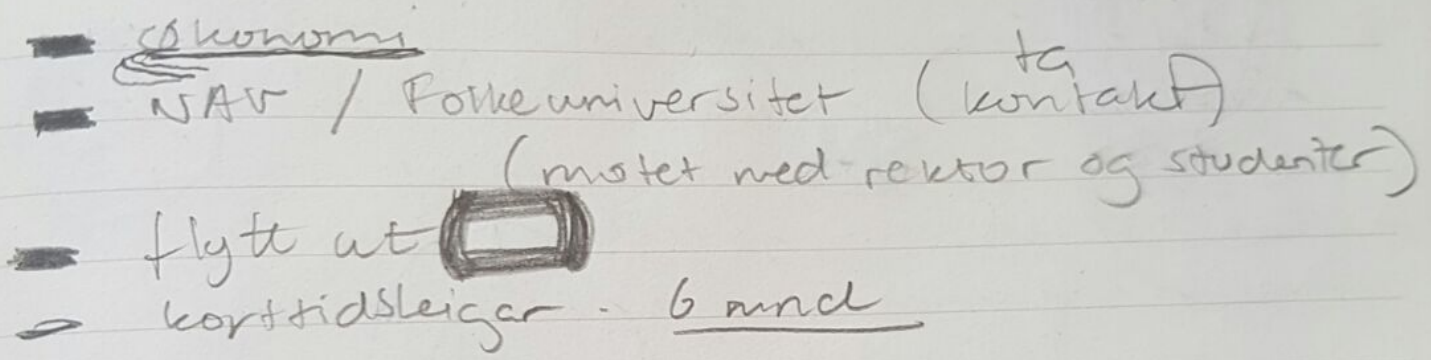 økonomi
NAV / Folkeuniversitet (ta kontakt)
(møtet med rektor og studenter)
flytt ut
korttidsleigar - 6 mnd